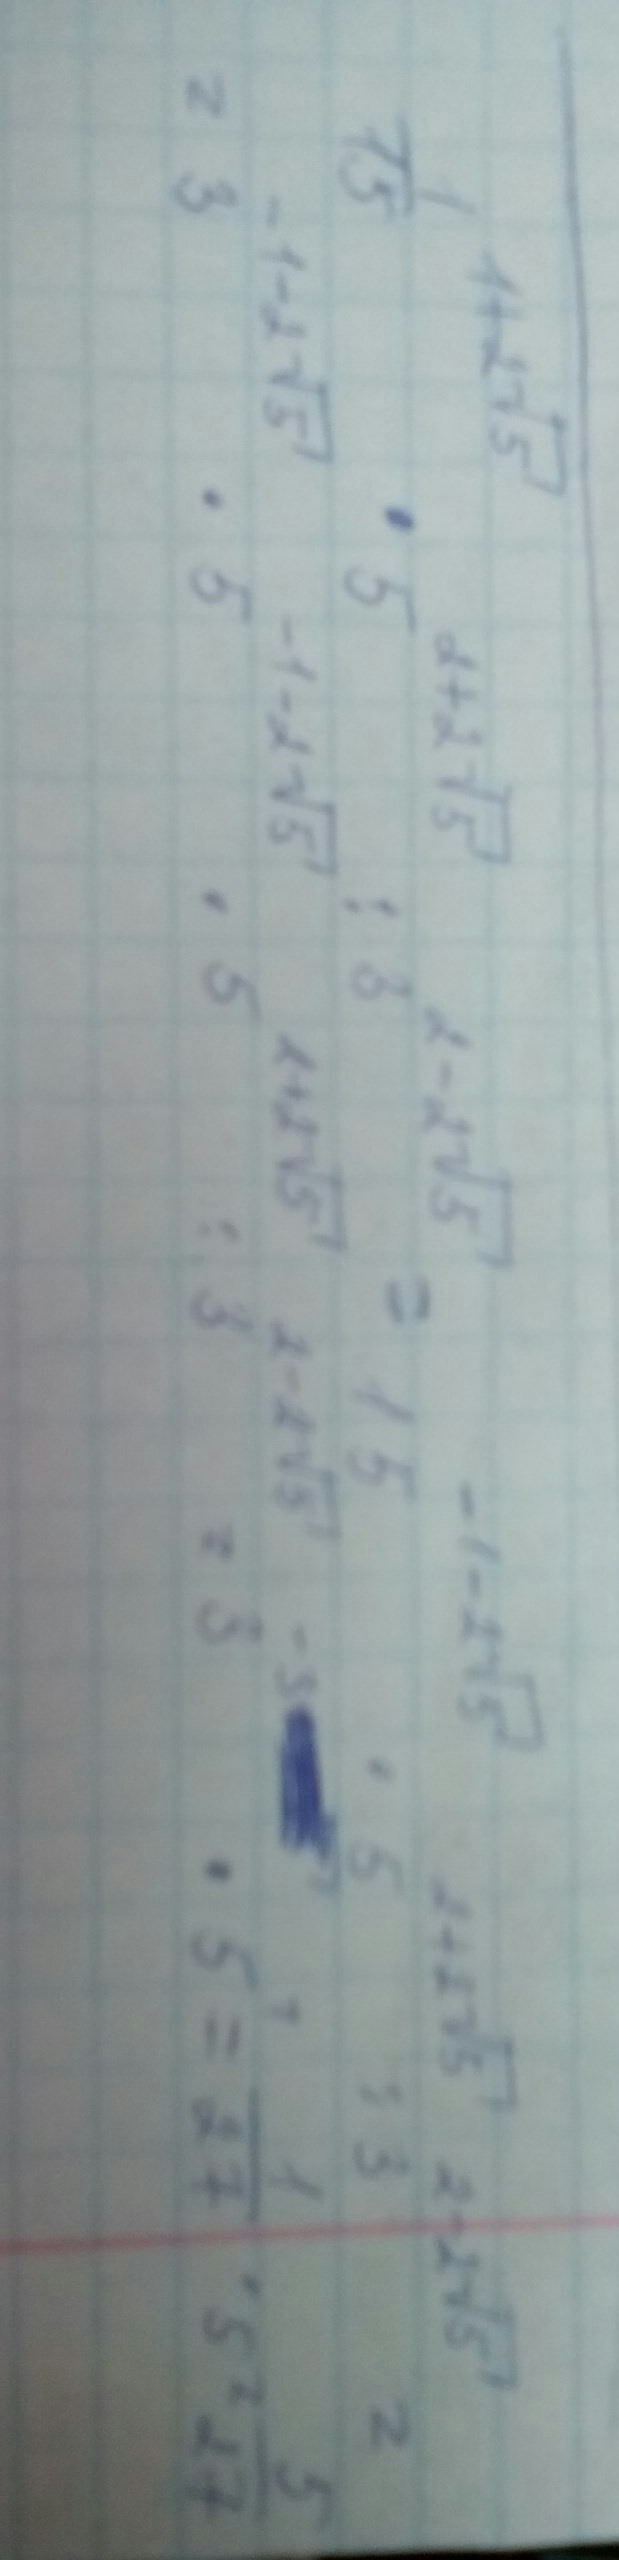 1/15^(1+2√5) · 5^(2+2√5) : 3^(2-2√5) = 15^(-1-2√5) · 5^(2+2√5) : 3^(2-2√5) =
= 3^(-1-2√5) · 5^(-1-2√5) · 5^(2+2√5) : 3^(2-2√5) = 3^(-3) · 5^1 = 1/27 · 5 = 5/27